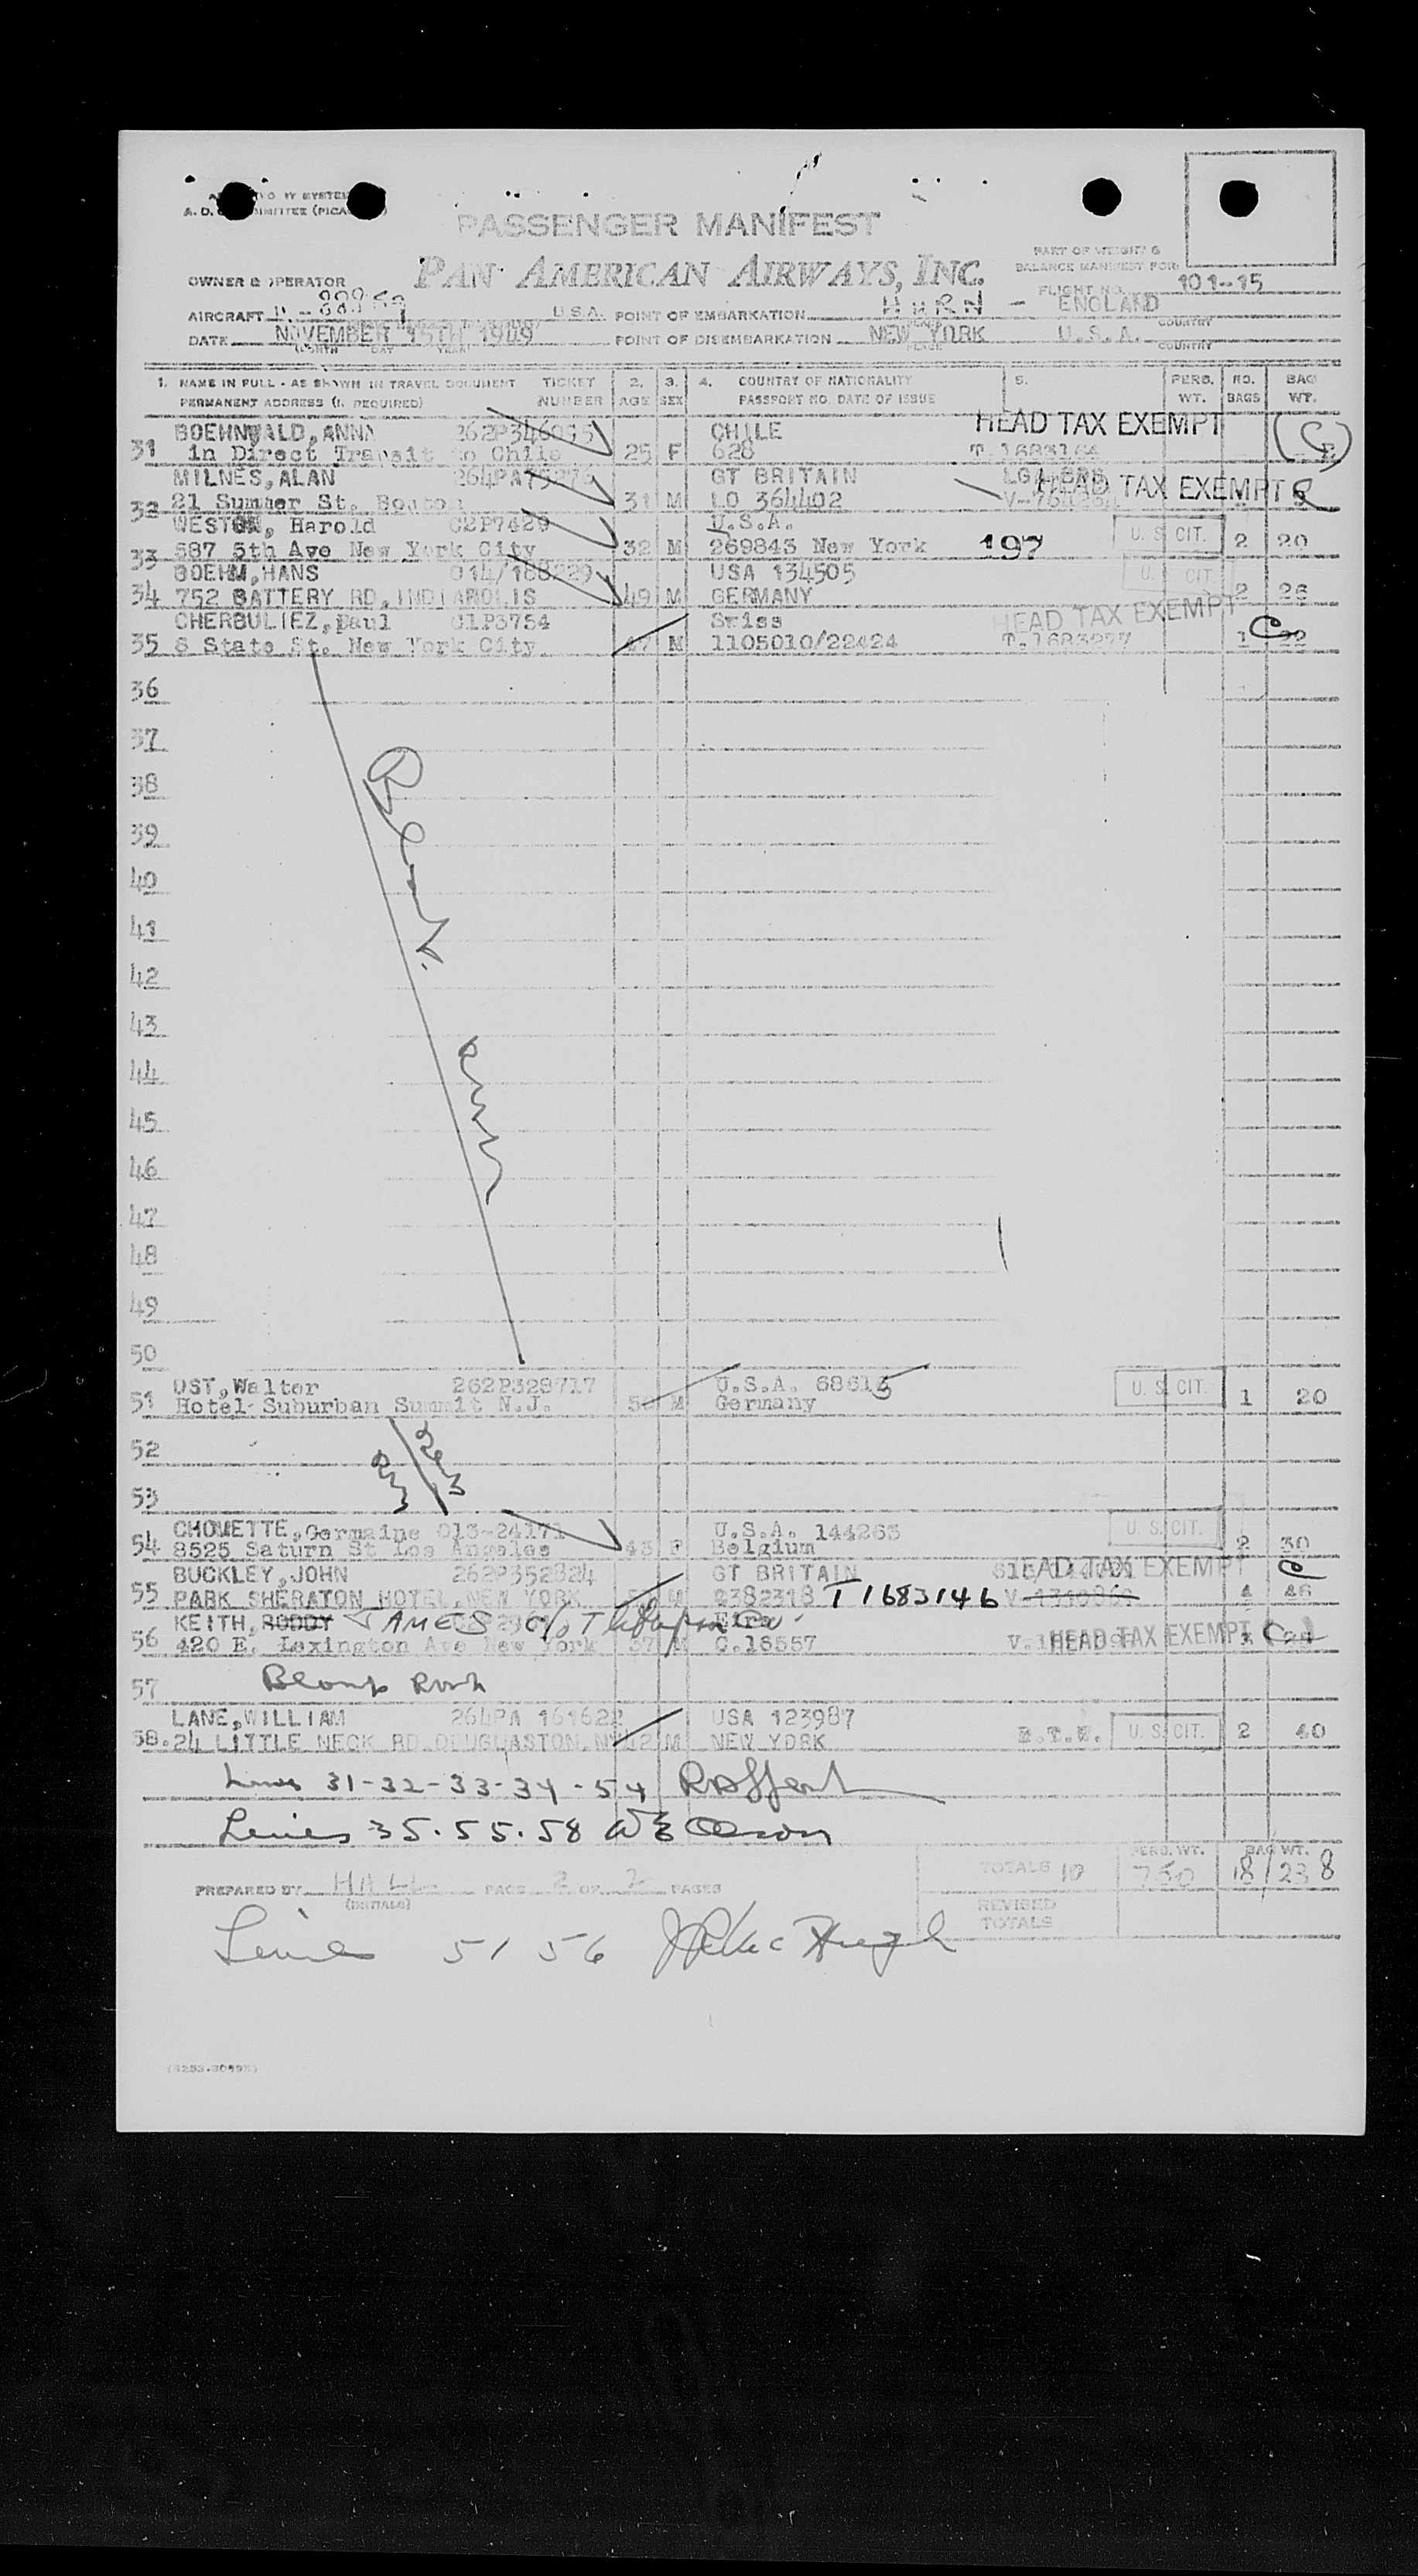 PASSENGER MANIFEST
PAN AMERICAN AIRWAYS, INC.
PART OF WEIGHT &
BALANCE MANIFEST FOR:
OWNER & OPERATOR
FLIGHT NO. 101-15
AIRCRAFT U.S.A. POINT OF EMBARKATION HURN - ENGLAND
COUNTRY
DATE NOVEMBER 15TH 1949 POINT OF DISEMBARKATION NEW YORK U.S.A.
MONTH DAY YEAR PLACE COUNTRY
1. NAME IN FULL - AS SHOWN IN TRAVEL DOCUMENT TICKET 2. 3. 4. COUNTRY OF NATIONALITY 5. PERS. NO. BAG
PERMANENT ADDRESS (IF REQUIRED) NUMBER AGE SEX PASSPORT NO. DATE OF ISSUE WT. BAGS WT.
BOEHNWALD, ANNA CHILE HEAD TAX EXEMPT
31 in Direct Transit to Chile 25 F 628 T.1683164
MILNES, ALAN GT BRITAIN
32 21 Sumner St. Boston 31 M LO 364402 HEAD TAX EXEMPT
WESTON, Harold 02P7429 U.S.A.
33 587 5th Ave New York City 32 M 269843 New York 197 U. S. CIT. 2 20
BOEHM, HANS 014/188229 USA 134505 U. CIT.
34 752 BATTERY RD, INDIANOLIS 49 M GERMANY 2 26
CHERBULIEZ, Paul 01P3754 Swiss HEAD TAX EXEMPT
35 8 State St. New York City 47 M 1105010/22424 T.1683277 1 22
36
37
38
39
40
41
42
43
44
45
46
47
48
49
50
OST, Walter 262P329717 U.S.A. 68613
51 Hotel Suburban Summit N.J. M Germany U. S. CIT. 1 20
52
53
CHOMETTE, Germaine 013-24171 U.S.A. 144263
54 8525 Saturn St Los Angeles 43 F Belgium U. S. CIT. 2 30
BUCKLEY, JOHN 262P352824 GT BRITAIN HEAD TAX EXEMPT
55 PARK SHERATON HOTEL, NEW YORK M 2382318 T1683146 4 46
KEITH, RODDY JAMES Eire
56 420 E. Lexington Ave New York 37 M C.18557 HEAD TAX EXEMPT
57
LANE, WILLIAM 264PA 161622 USA 123987
58. 24 LITTLE NECK RD. DOUGLASTON, NY 42 M NEW YORK U. S. CIT. 2 40
Lines 31-32-33-34-54
Lines 35.55.58 W E Olson
PERS. WT. BAG WT.
TOTALS 10 750 18/238
PREPARED BY HALL PAGE 2 OF 2 PAGES
(INITIALS)
REVISED
TOTALS
Lines 51 56